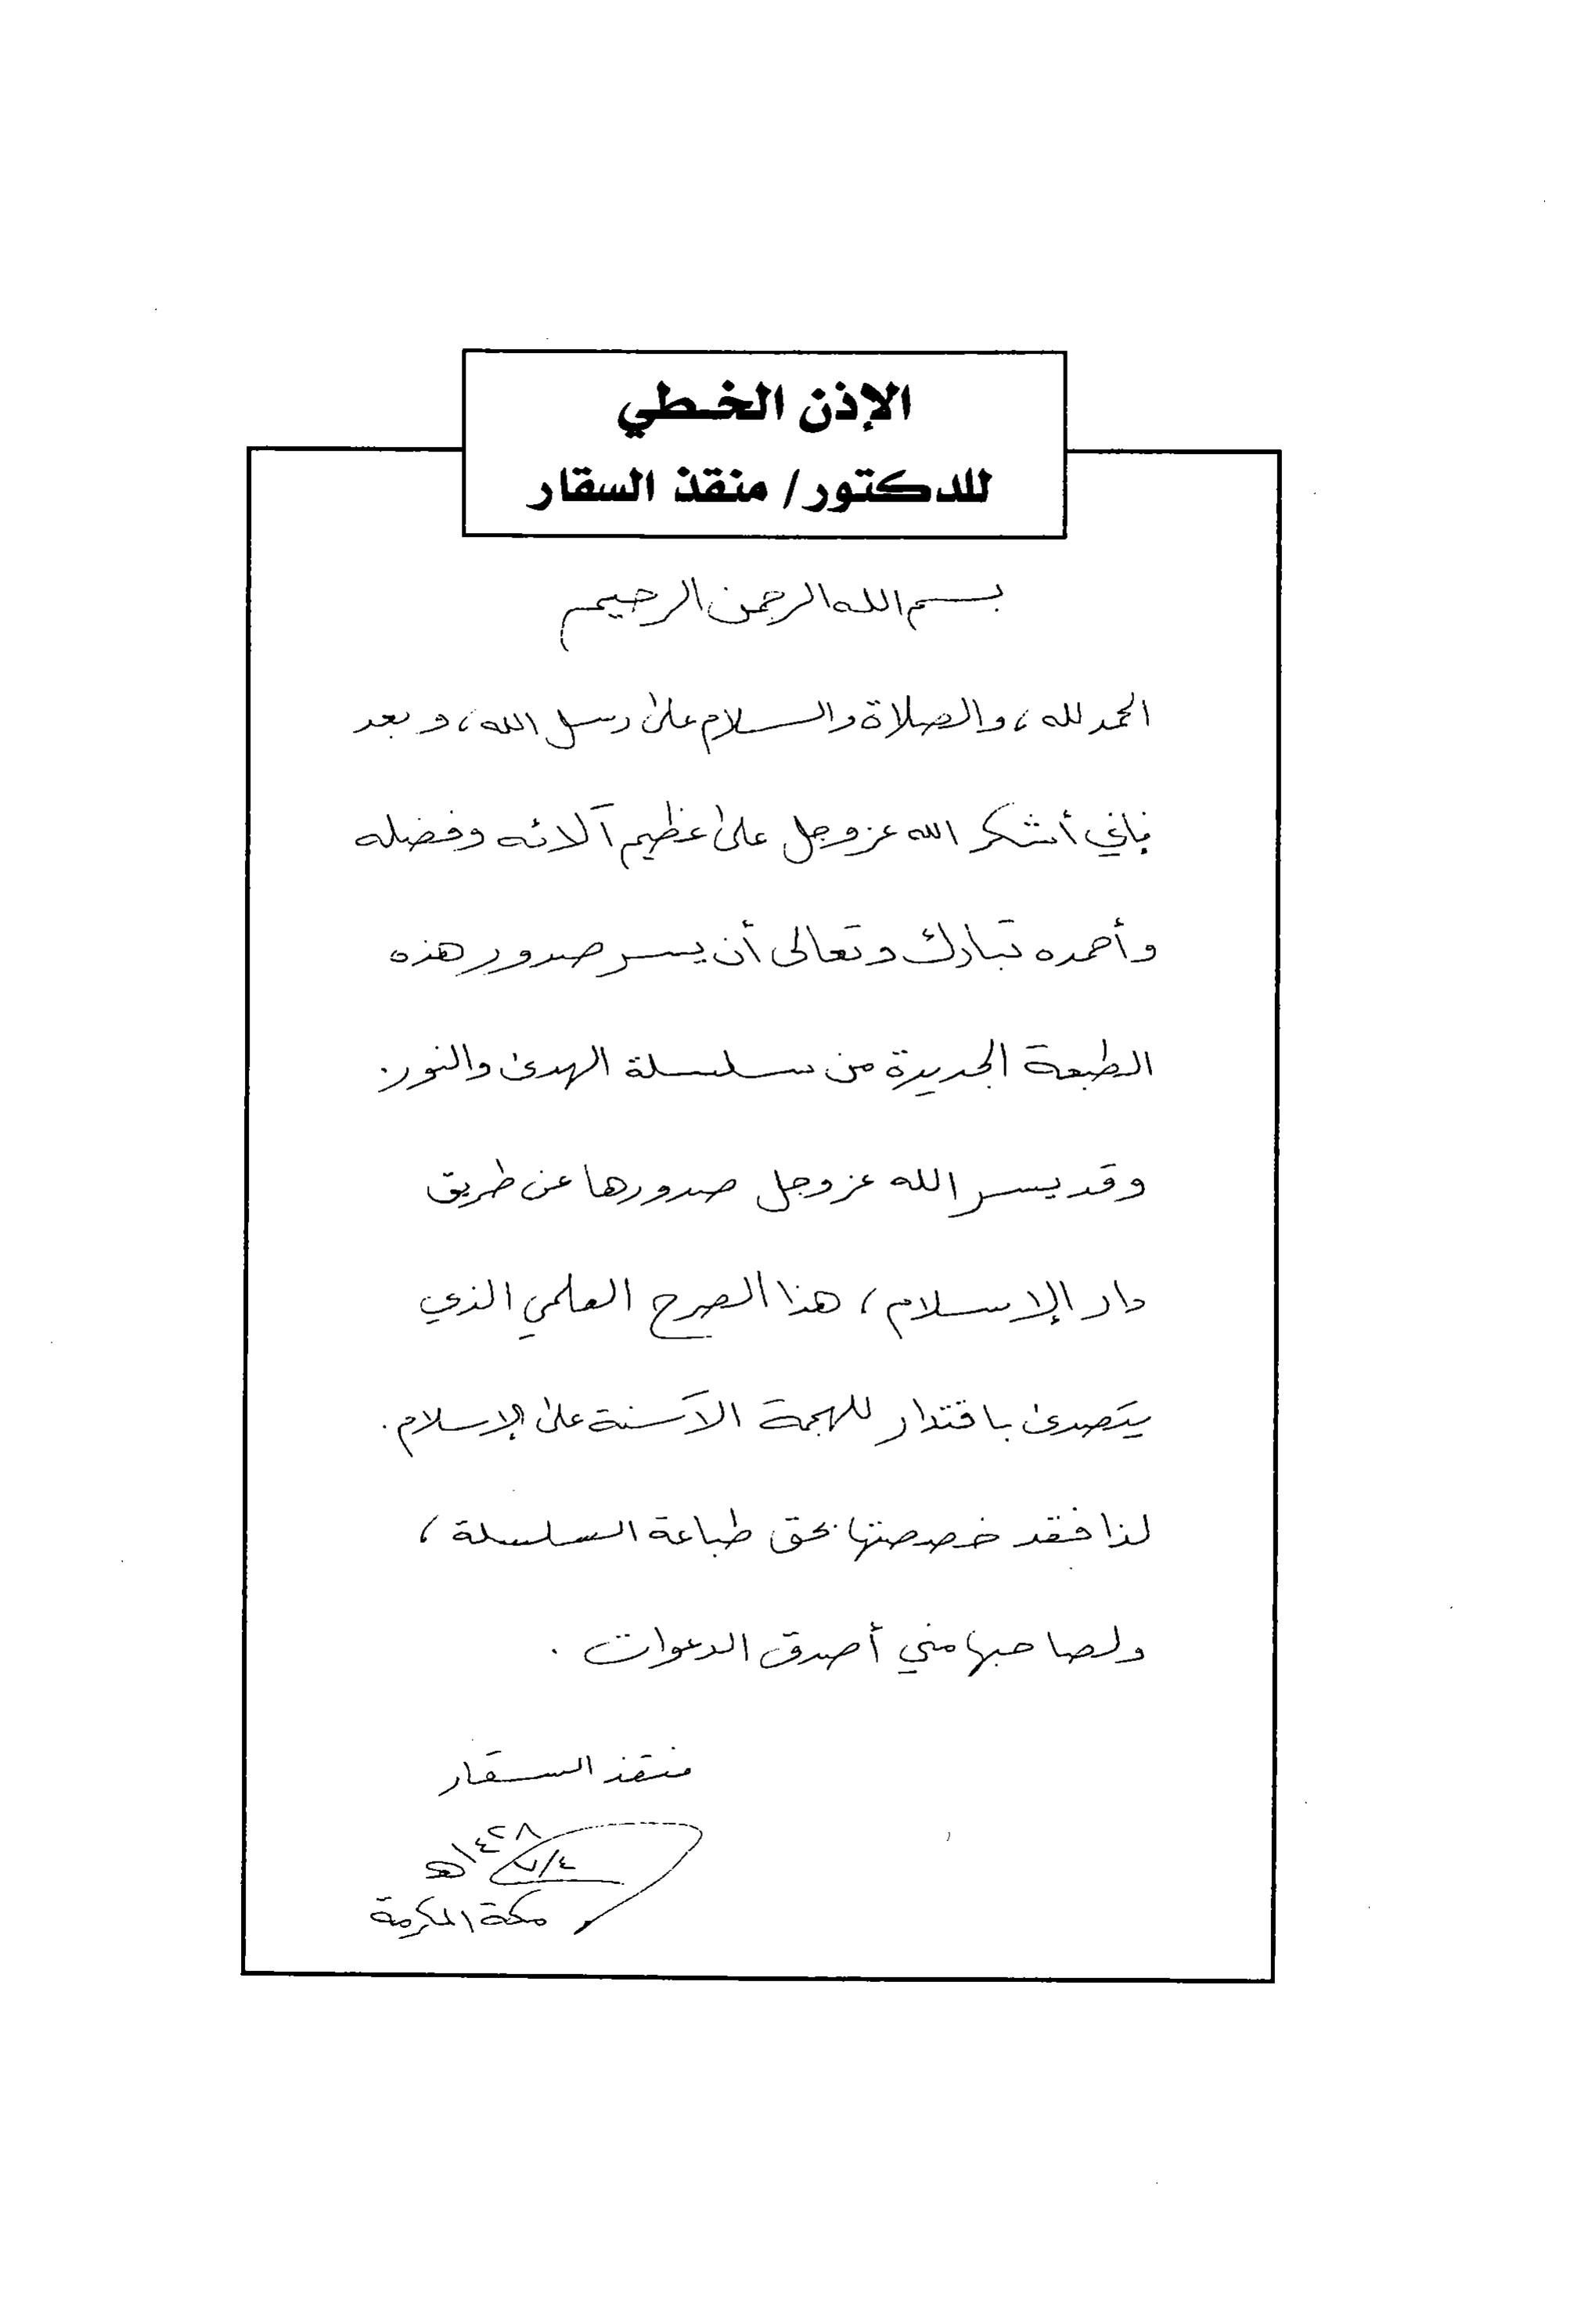 الإذن الخطي
للدكتور/ منقذ السقار
بسم الله الرحمن الرحيم
الحمد لله، والصلاة والسلام على رسل الله، وبعد
فإني أشكر الله عز وجل على عظيم آلائه وفضله
وأحمده تبارك وتعالى أن يسر صدور هذه
الطبعة الجديدة من سلسلة الهدى والنور.
وقد يسر الله عز وجل صدورها عن طريق
دار الإسلام، هذا الصرح العلمي الذي
يتصدى باقتدار للهجمة الآسنة على الإسلام.
لذا فقد خصصتها بحق طباعة السلسلة،
ولصاحبها مني أصدق الدعوات.
منقذ السقار
٤/٧/١٤٢٨هـ
مكة المكرمة